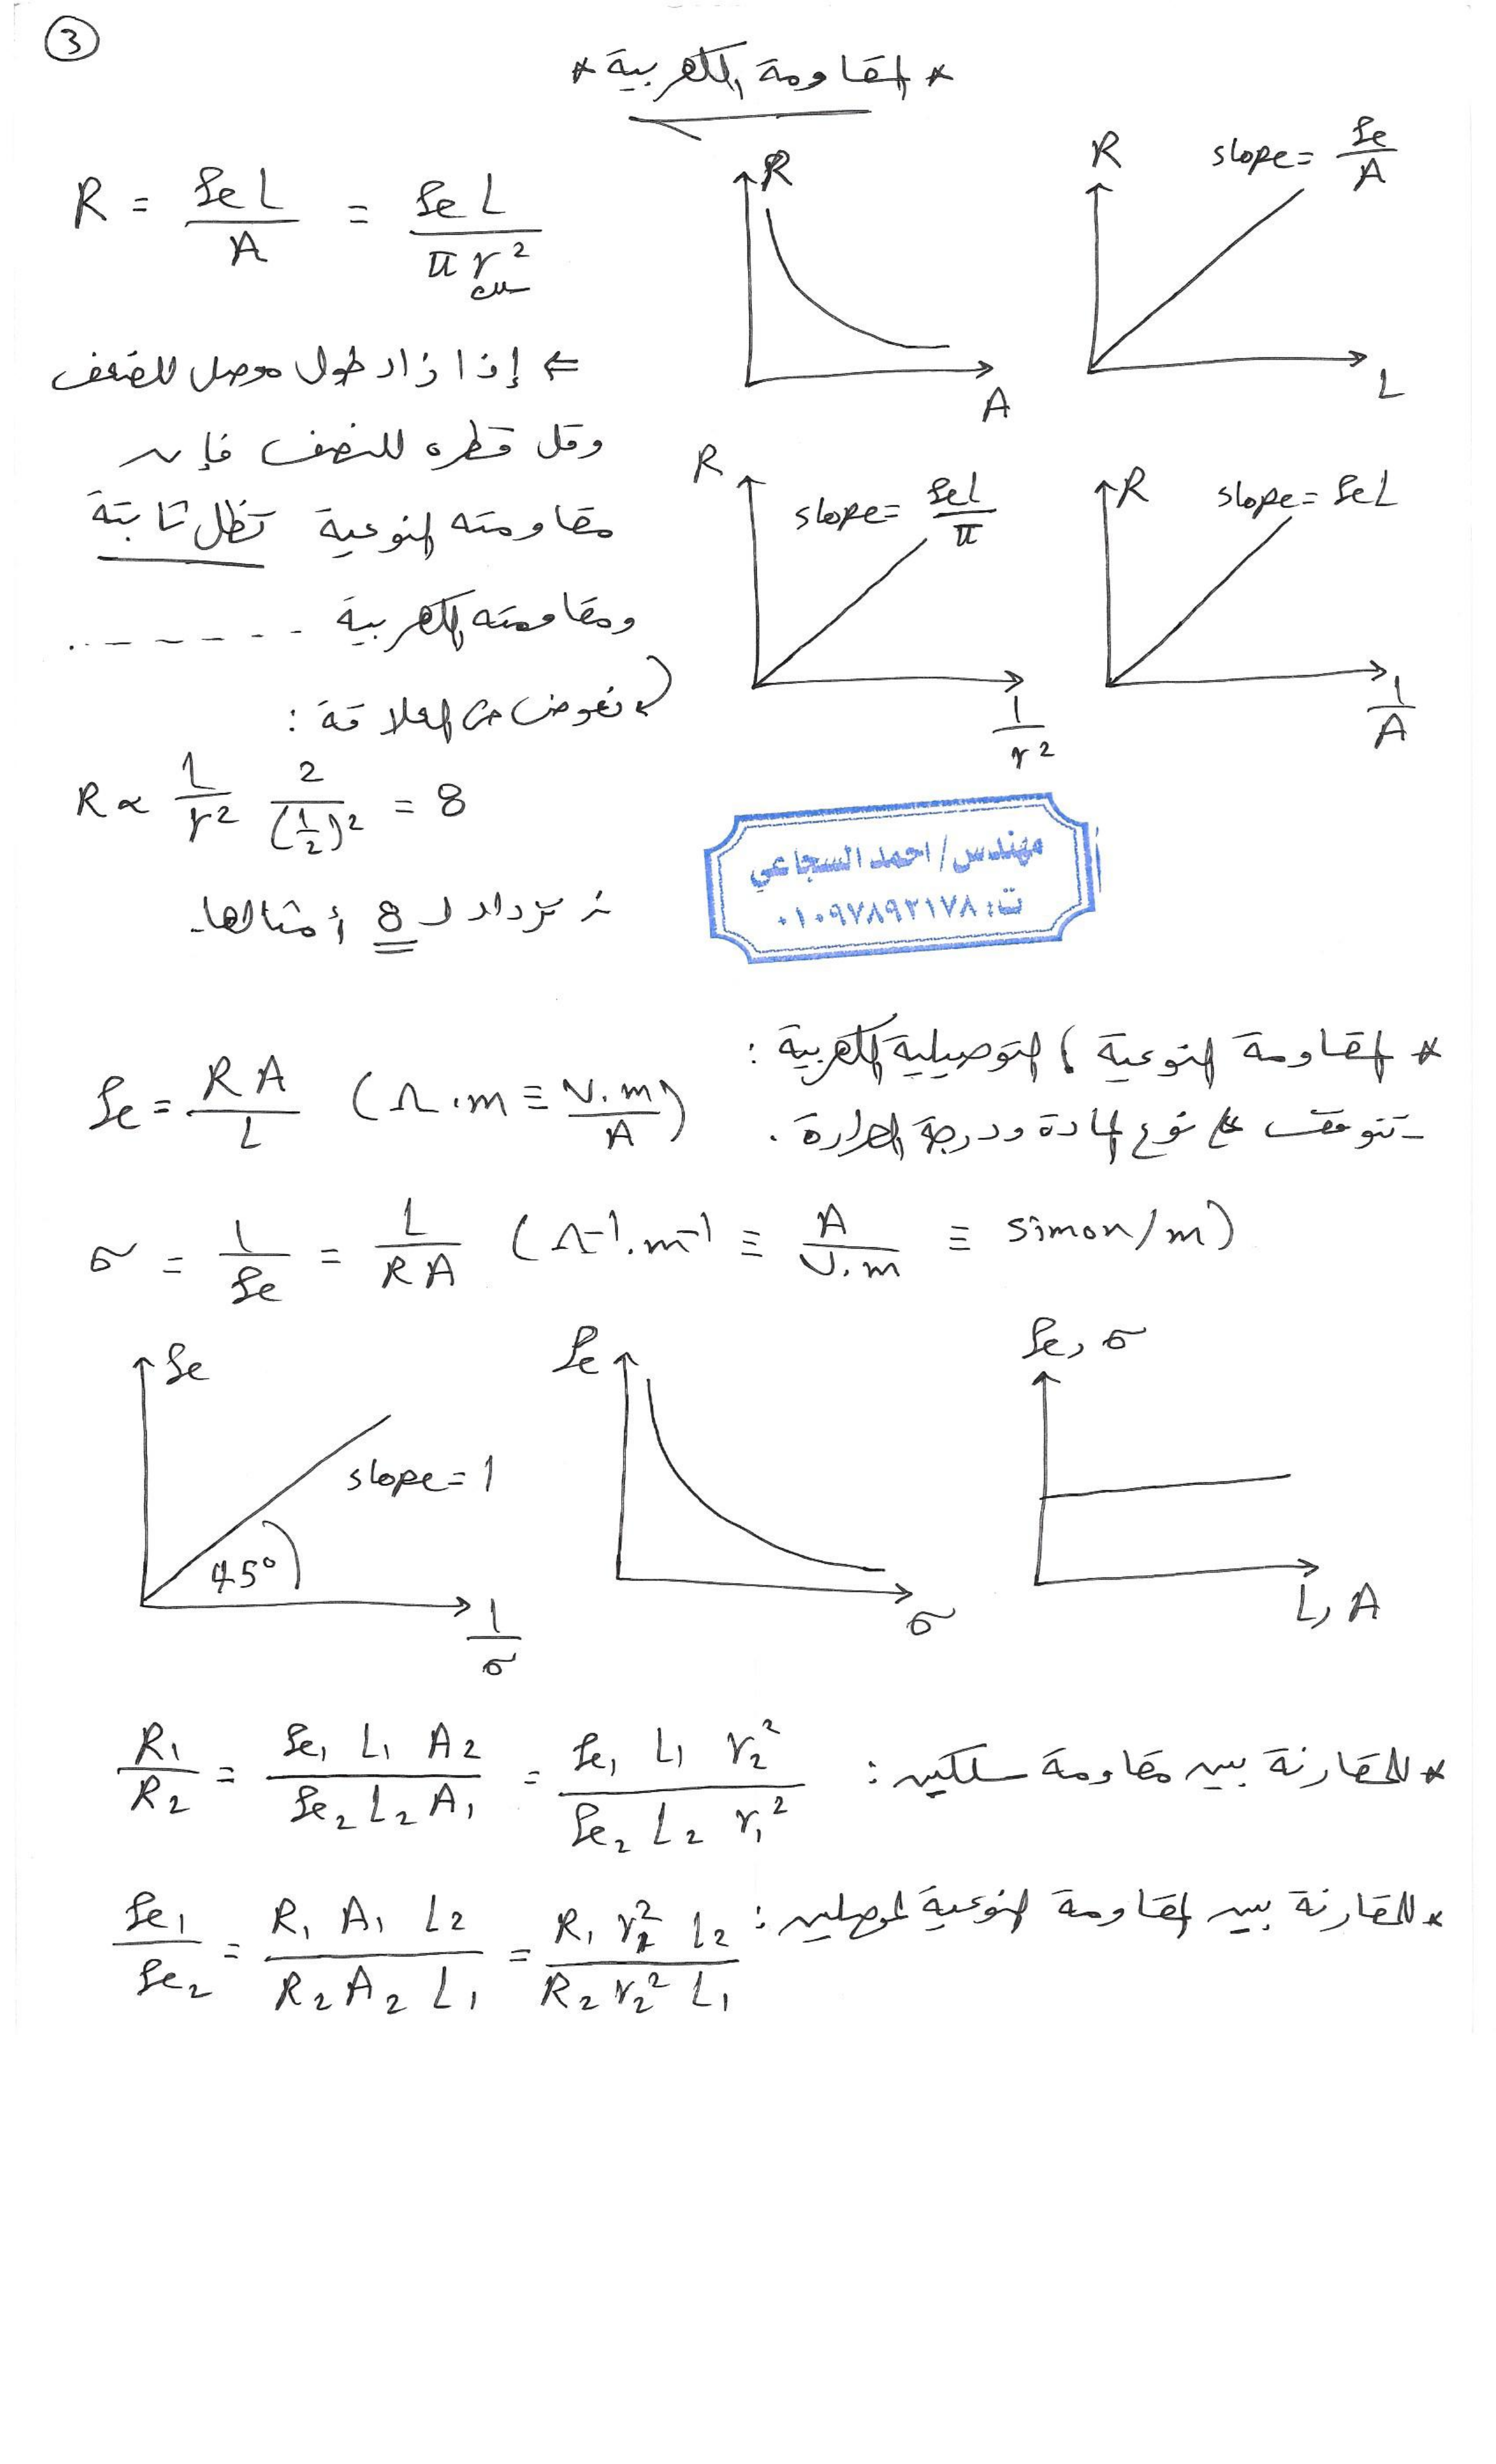 3
* المقاومة الكهربية *
R = ρe L / A = ρe L / π r² سلك
R
A
R
slope = ρe / A
L
⇐ إذا زاد طول موصل للضعف
وقل قطره للنصف فإن
مقاومته النوعية تظل ثابتة
ومقاومته الكهربية - - - - - -
نعوض من العلاقة :
R ∝ L / r² 2 / (1/2)² = 8
∴ تزداد لـ 8 أمثالها.
R
slope = ρe L / π
1 / r²
R
slope = ρe L
1 / A
مهندس/ احمد السجاعي
ت: ٠١٠٩٧٨٩٢١٧٨
* المقاومة النوعية ، التوصيلية الكهربية :
- تتوقف على نوع المادة ودرجة الحرارة .
ρe = R A / L (Ω.m ≡ V.m / A)
σ = 1 / ρe = L / R A (Ω⁻¹.m⁻¹ ≡ A / V.m ≡ simon/m)
ρe
slope = 1
45°
1 / σ
ρe
σ
ρe, σ
L, A
* للمقارنة بين مقاومة سلكين :
R₁ / R₂ = ρe₁ L₁ A₂ / ρe₂ L₂ A₁ = ρe₁ L₁ r₂² / ρe₂ L₂ r₁²
* للمقارنة بين المقاومة النوعية لموصلين :
ρe₁ / ρe₂ = R₁ A₁ L₂ / R₂ A₂ L₁ = R₁ r₁² L₂ / R₂ r₂² L₁